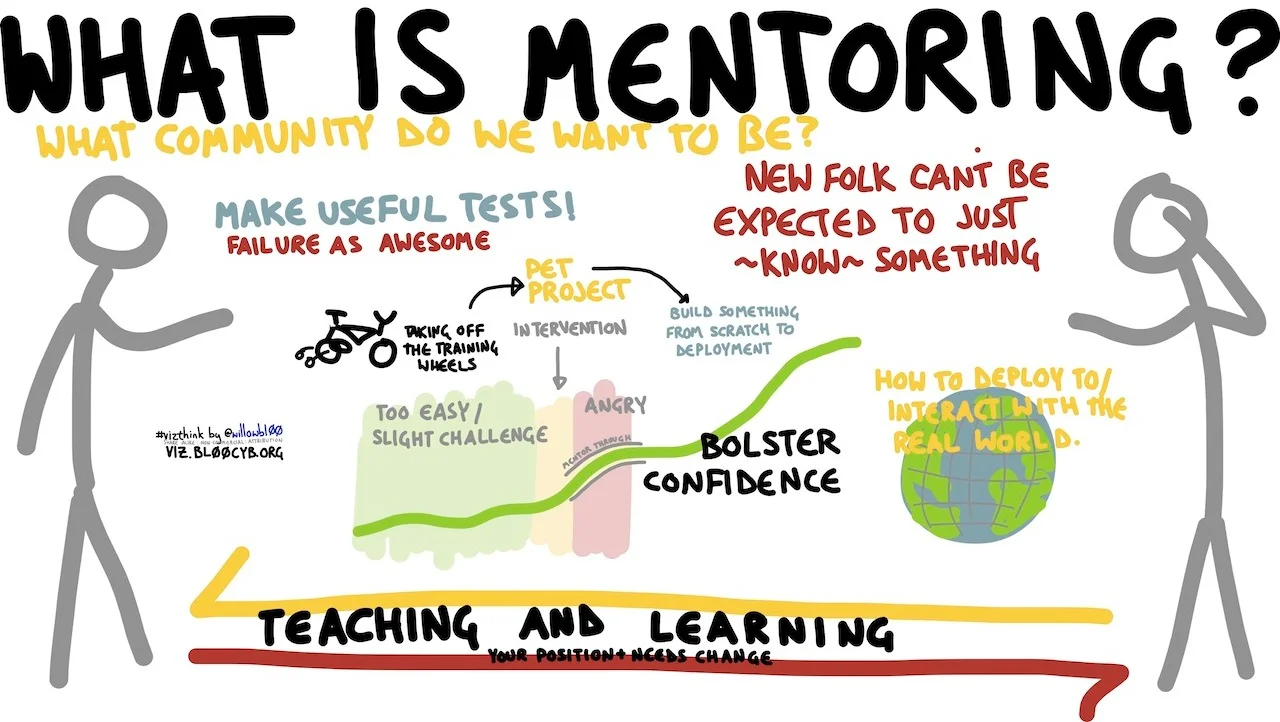 WHAT IS MENTORING?
WHAT COMMUNITY DO WE WANT TO BE?
MAKE USEFUL TESTS!
FAILURE AS AWESOME
NEW FOLK CANT BE
EXPECTED TO JUST
~KNOW~ SOMETHING
PET
PROJECT
TAKING OFF
THE TRAINING
WHEELS
INTERVENTION
BUILD SOMETHING
FROM SCRATCH TO
DEPLOYMENT
TOO EASY/
SLIGHT CHALLENGE
ANGRY
MENTOR THROUGH
BOLSTER
CONFIDENCE
HOW TO DEPLOY TO/
INTERACT WITH THE
REAL WORLD.
#vizthink by @willowbl00
SHARE ALIKE NON-COMMERCIAL ATTRIBUTION
VIZ.BLØØCYB.ORG
TEACHING AND LEARNING
YOUR POSITION + NEEDS CHANGE